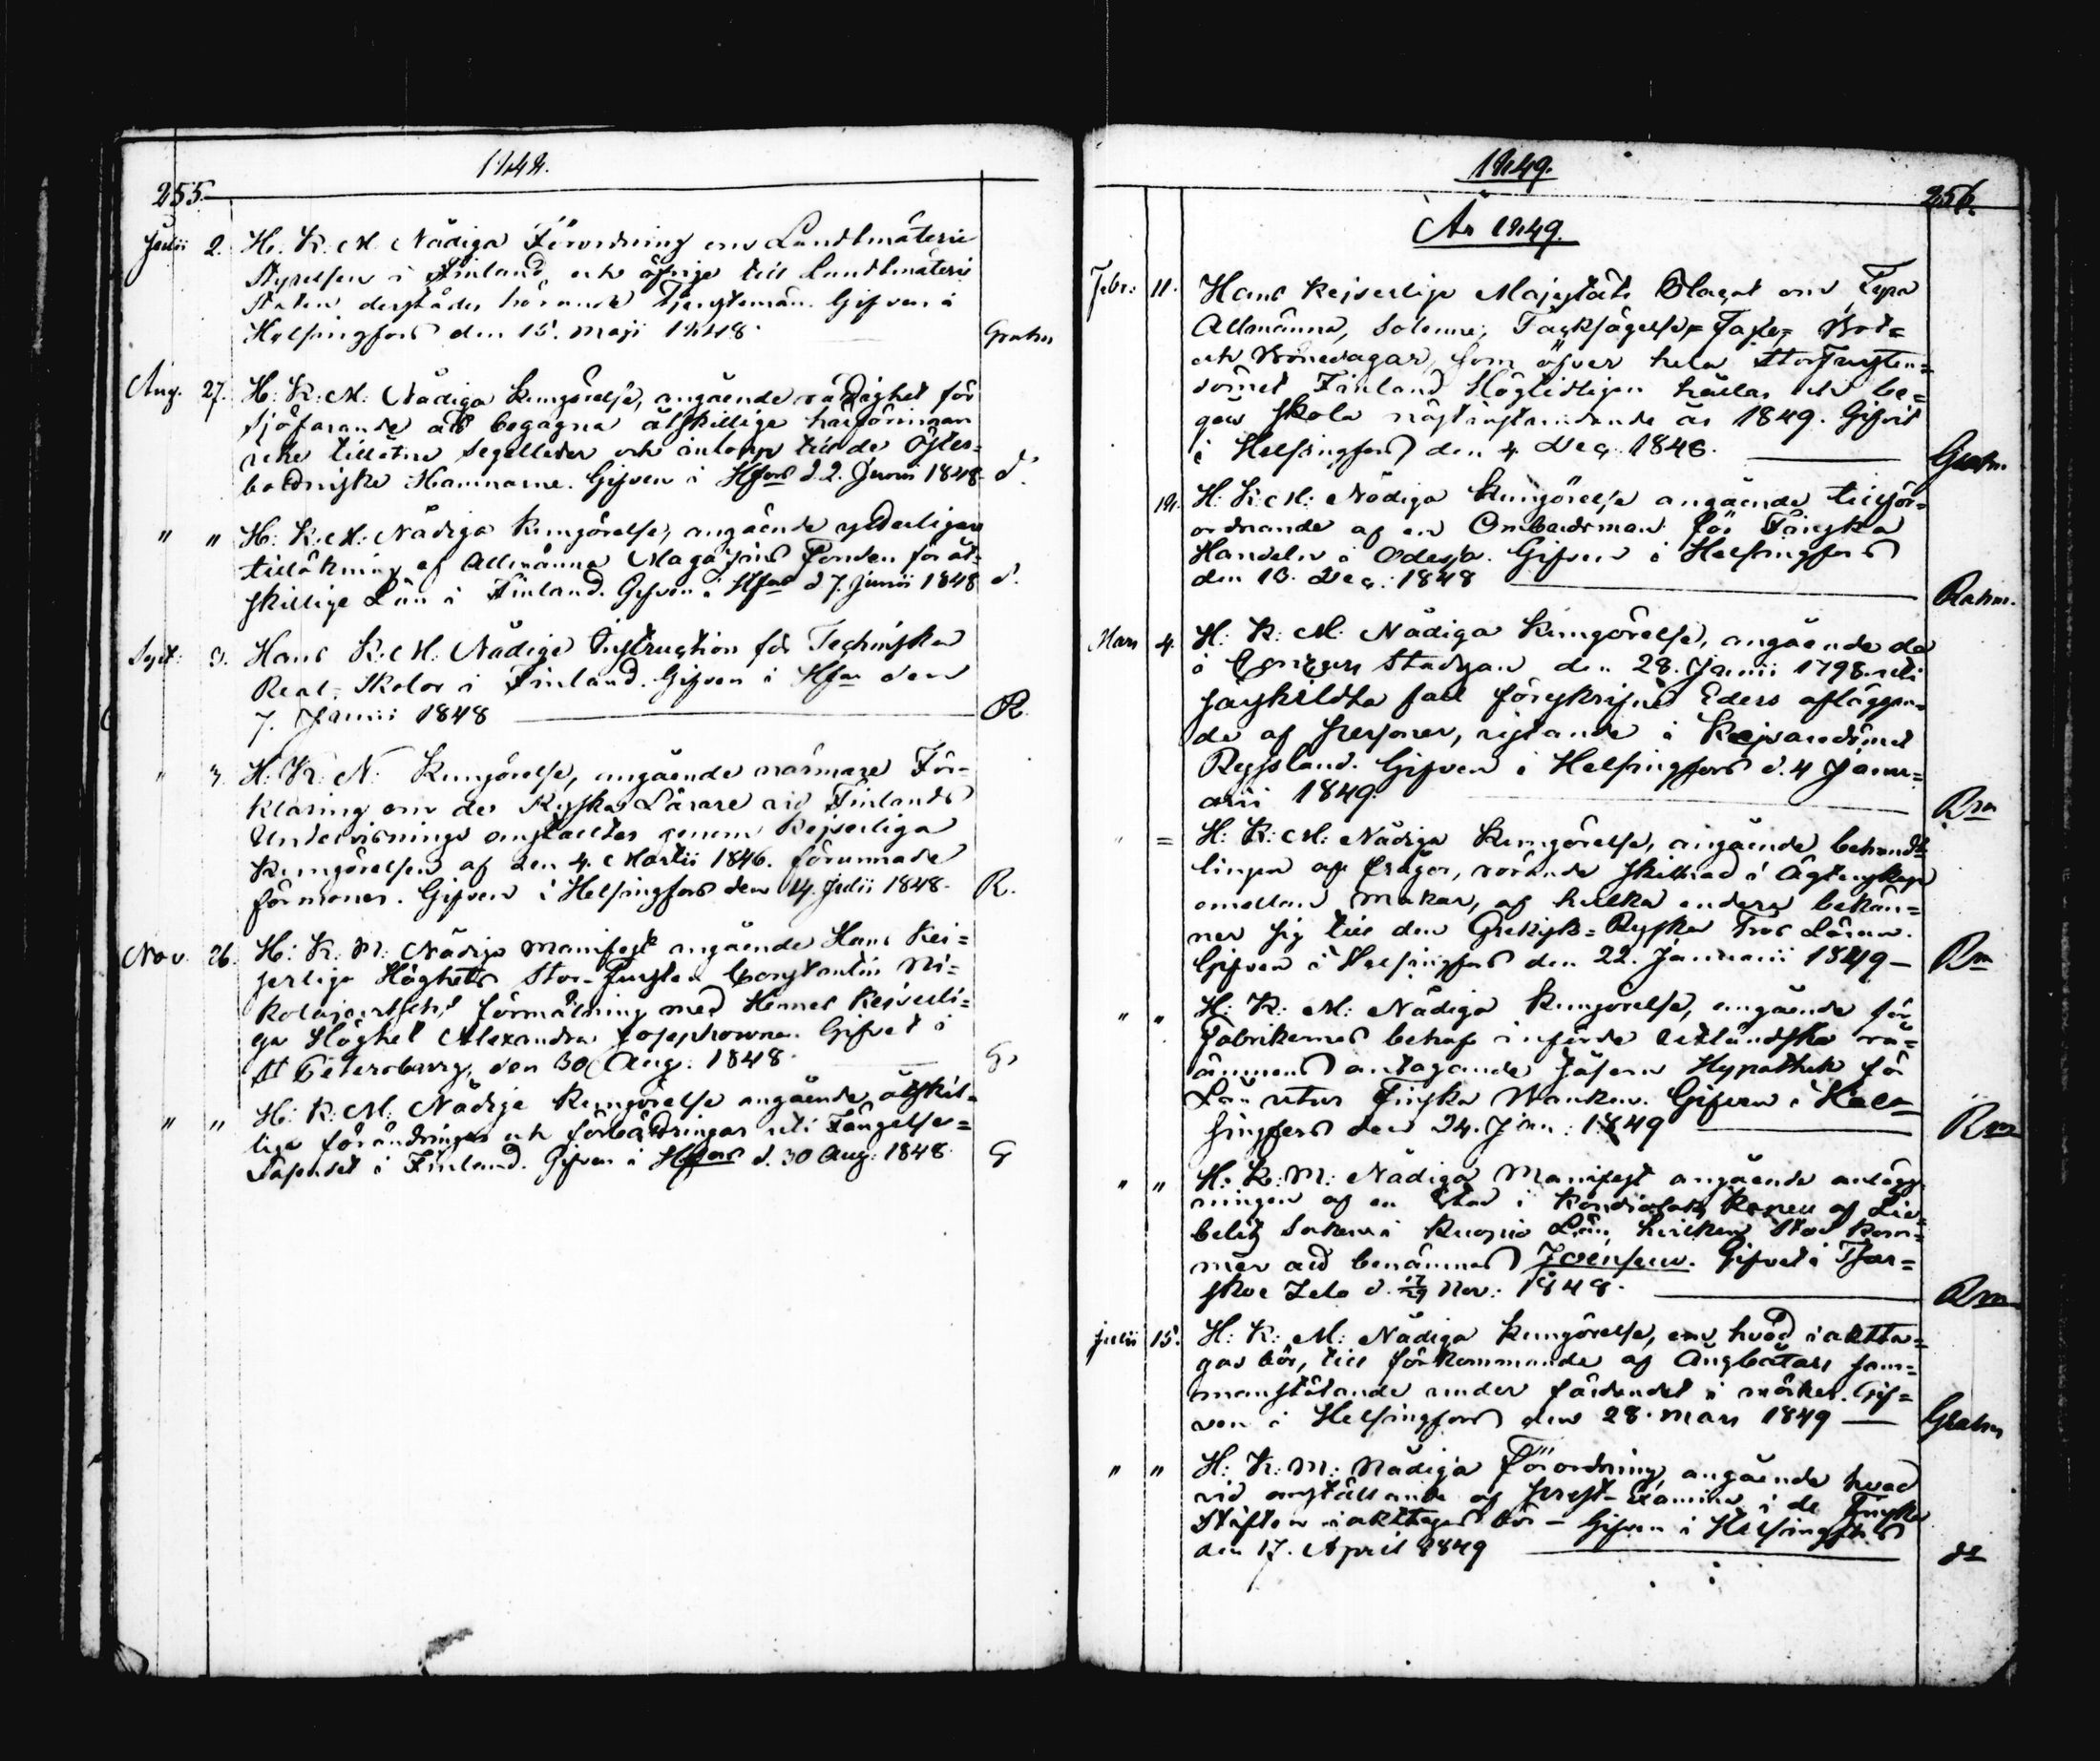 1848.
255.
Julii 2. H. K. M. Nådiga Förordning om Landtmäterie
Styrelsen i Finland och öfrige till Landtmäteri
Staten derstädes hörande Tjenstemän. Gifven i
Helsingfors den 15. Maji 1848. Grahn
Aug. 27. H. K. M. Nådiga Kungörelse, angående rättighet för
sjöfarande att begagna åtskillige härförinnan
icke tillåtne Segelleder och inlopp till de Öster-
bottniska Hamnarne. Gifven i Hfors d. 2. Junii 1848. d.
" " H. K. M. Nådiga Kungörelse, angående ytterligare
tillökning af Allmänna Magazins Fonden för åt-
skillige Län i Finland. Gifven i Hfors d 7. Junii 1848 d.
Sept. 3. Hans K. M. Nådiga Instruction för Techniska
Real-Skolor i Finland. Gifven i Hfors den
7. Junii 1848 R.
" 3. H. K. N. Kungörelse, angående närmare För-
klaring om de Ryska Lärare vid Finlands
Undervisnings anstallter genom Kejserliga
Kungörelsen af den 4. Martii 1846. förunnade
förmoner. Gifven i Helsingfors den 14. Julii 1848. R.
Nov. 26. H. K. M. Nådiga Manifest angående Hans Kei=
serliga Höghets Stor-Fursten Constantin Ni=
kolajewitsch's förmälning med Hennes Keiserli=
ga Höghet Alexandra Josephowna. Gifvet i
St Petersburg, den 30 Aug. 1848. G.
" " H. K. M. Nådige Kungörelse angående åtskil=
lige förändringar och förbättringar uti Fängelse=
Väsendet i Finland. Gifven i Hfors d. 30 Aug. 1848. G
1849.
256.
År 1849.
Febr: 11. Hans Kejserliga Majestäts Plakat om Fyra
Allmänna, Solenne, Tacksägelse= Faste= Bot=
och Bönedagar, som öfver hela StorFursten=
dömet Finland Högtidligen hållas och be=
gås skola nästinstundande år 1849. Gifvit
i Helsingfors den 4. Dec. 1848. Grahn.
18. H. K. M: Nådiga Kungörelse angående tillför-
ordnande af en Ombudsman för Finska
Handeln i Odessa. Gifven i Helsingfors
den 13. Dec: 1848 Rahm.
Mars 4. H: K: M: Nådiga Kungörelse, angående de
i Conkurs Stadgan den 28. Junii 1798. uti
särskildta fall föreskrifne Eders afläggan=
de af personer, vistande i Kejsaredömet
Ryssland. Gifven i Helsingfors d. 4 Janu=
arii 1849. Rm
" = H: K: M: Nådiga Kungörelse, angående behand=
lingen af frågor, rörande skillnad i Ägtenskap
emellan makar, af hvilka endera bekän=
ner sig till den Grekisk=Ryska Tros Läran.
Gifven i Helsingfors den 22. Januarii 1849 — Rm
" " H: K: M: Nådiga Kungörelse, angående för
Fabrikernes behof införde utländska rå=
ämnens antagande såsom Hypothek för
Lån utur Finska Banken. Gifven i Hel=
singfors den 24. Jan: 1849 Rm
" " H: K: M: Nådiga Manifest angående anlägg-
ningen af en Stad i Kontiolaks af Lie=
belitz Soken i Kuopio Län, hvilken Stad kom=
mer att benämnas Joensuu. Gifvet i Tsar=
skoe Zelo d. 17/29 Nov: 1848. Rm
Julii 15. H: K: M: Nådiga Kungörelse, om hvad iaktta=
gas bör, till förekommande af Ångbåtars sam=
manstötande under färdandet i mörker. Gif=
ven i Helsingfors den 28. Mars 1849 — Grahn
" " H: K: M: Nådiga Förordning angående hvad
vid anställande af Prest-Examina i de Finska
Stiften iakttagas bör — Gifven i Helsingfors
den 17. April 1849 d: